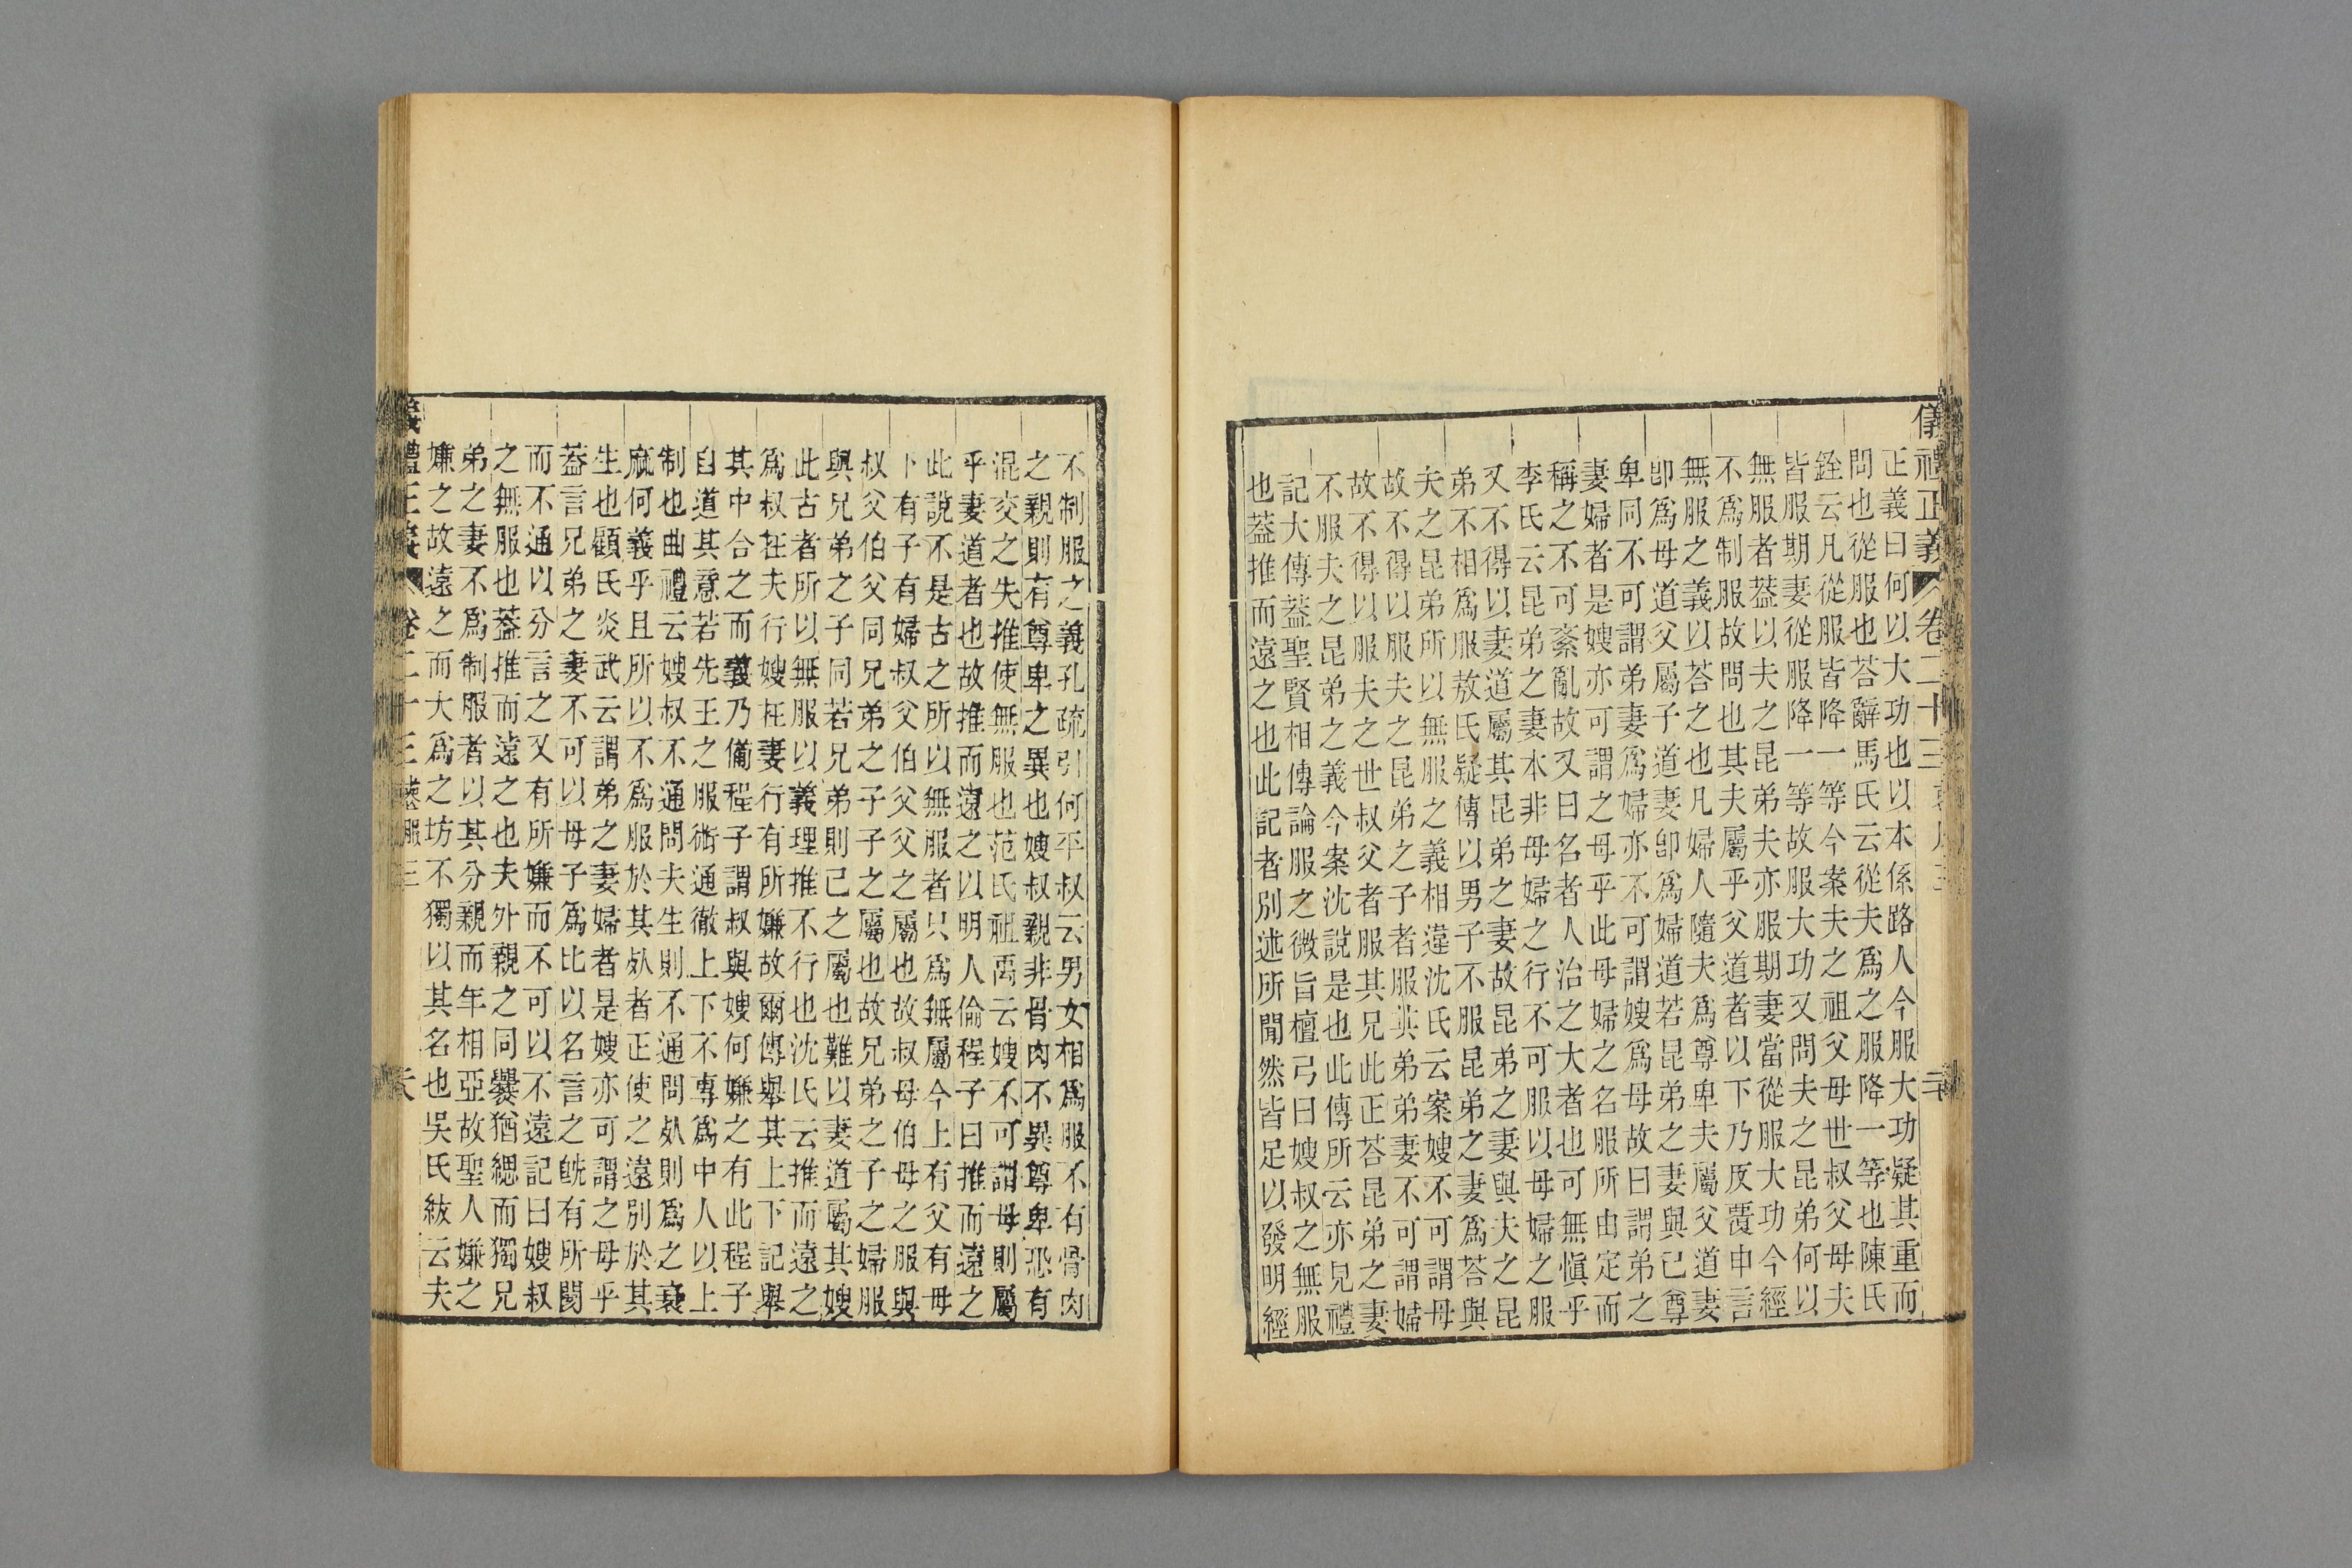 儀禮正義 卷二十三 喪服三
正義曰何以大功也以本係路人今服大功疑其重而
問也從服也荅辭馬氏云從夫爲之服降一等也陳氏
銓云凡從服皆降一等今案夫之祖父母世叔父母夫
皆服期妻從服降一等故服大功又問夫之昆弟何以
無服者葢以夫之昆弟夫亦服期妻當從服大功今經
不爲制服故問也其夫屬乎父道者以下乃反覆申言
無服之義以荅之也凡婦人隨夫爲尊卑夫屬父道妻
卽爲母道父屬子道妻卽爲婦道若昆弟之妻與己尊
卑同不可謂弟妻爲婦亦不可謂嫂爲母故曰謂弟之
妻婦者是嫂亦可謂之母乎此母婦之名服所由定而
稱之不可紊亂故又曰名者人治之大者也可無愼乎
李氏云昆弟之妻本非母婦之行不可服以母婦之服
又不得以妻道屬其昆弟之妻故昆弟之妻與夫之昆
弟不相爲服敖氏疑傳以男子不服昆弟之妻爲荅與
夫之昆弟所以無服之義相違沈氏云案嫂不可謂母
故不得以服夫之昆弟之子者服其弟弟妻不可謂婦
故不得以服夫之世叔父者服其兄此正荅昆弟之妻
不服夫之昆弟之義今案沈說是也此傳所云亦見禮
記大傳葢聖賢相傳論服之微旨檀弓曰嫂叔之無服
也葢推而遠之也此記者別述所聞然皆足以發明經
不制服之義孔疏引何平叔云男女相爲服不有骨肉
之親則有尊卑之異也嫂叔親非骨肉不異尊卑恐有
混交之失推使無服也范氏祖禹云嫂不可謂母則屬
乎妻道者也故推而遠之以明人倫程子曰推而遠之
此說不是古之所以無服者只爲無屬今上有父有母
下有子有婦叔父伯父父之屬也故叔母伯母之服與
叔父伯父同兄弟之子子之屬也故兄弟之子之婦服
與兄弟之子同若兄弟則己之屬也難以妻道屬其嫂
此古者所以無服以義理推不行也沈氏云推而遠之
爲叔在夫行嫂在妻行有所嫌故爾傳舉其上下記舉
其中合之而義乃備程子謂叔與嫂何嫌之有此程子
自道其意若先王之服術通徹上下不專爲中人以上
制也曲禮云嫂叔不通問夫生則不通問㱕則爲之衰
麻何義乎且所以不爲服於其㱕者正使之遠別於其
生也顧氏炎武云謂弟之妻婦者是嫂亦可謂之母乎
葢言兄弟之妻不可以母子爲比以名言之旣有所閡
而不通以分言之又有所嫌而不可以不遠記曰嫂叔
之無服也葢推而遠之也夫外親之同爨猶緦而獨兄
弟之妻不爲制服者以其分親而年相亞故聖人嫌之
嫌之故遠之而大爲之坊不獨以其名也吳氏紱云夫